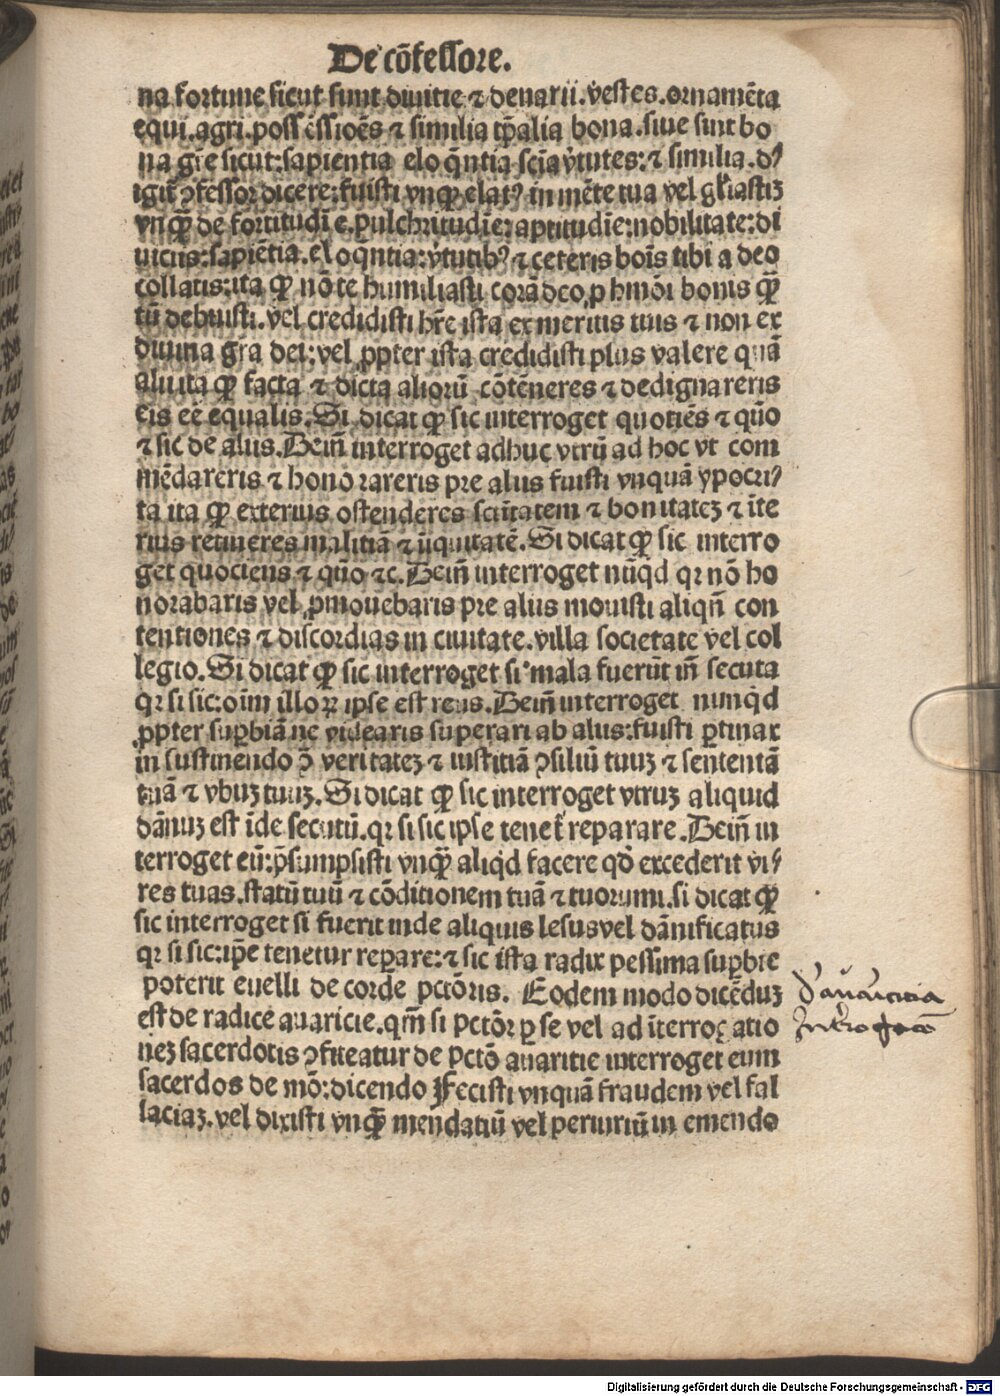 De cōfessore.
na fortune sicut sunt diuitie ⁊ denarii. vestes. ornamēta
equi. agri. possessioēs ⁊ similia tp̄alia bona. siue sint bo
na gr̄e sicut: sapientia eloq̄ntia scīa v̓tutes: ⁊ similia. dꝰ
igit̄ ꝯfessor dicere: fuisti vnqꝫ elatꝰ in mēte tua vel gl̄iastiꝫ
vnqꝫ̄ de fortitudīe. pulchritudīe: aptitudīe: nobilitate: di
uiciis: sapiētia. eloqntia: v̓tutibꝰ ⁊ ceteris boīs tibi a deo
collatis: ita qꝫ nō te humiliasti corā deo, p hmōi bonis qꝫ̄
tū debuisti. vel credidisti hr̄e ista ex meritis tuis ⁊ non ex
diuina gr̄a dei: vel ꝓpter ista credidisti plus valere quā
alii ita qꝫ facta ⁊ dicta aliorū cōtēneres ⁊ dedignareris
eis eē equalis. Si dicat qꝫ sic interroget quotiēs ⁊ qūo
⁊ sic de aliis. Dein̄ interroget adhuc vtrū ad hoc vt com
mēdareris ⁊ honorareris pre aliis fuisti vnquā ypocri⸗
ta ita qꝫ exterius ostenderes scītatem ⁊ bonitateꝫ ⁊ īte
rius retineres malitiā ⁊ iīquitatē. Si dicat qꝫ sic interro
get quociens ⁊ qūo ⁊c. Dein̄ interroget nūqd qr nō ho
norabaris vel ꝓmouebaris pre aliis mouisti aliqn̄ con
tentiones ⁊ discordias in ciuitate. villa societate vel col
legio. Si dicat qꝫ sic interroget si mala fuerūt in̄ secuta
qr si sic: oīm illoꝝ ipse est reus. Dein̄ interroget nunq̇d
ꝓpter suꝑbiā ne videaris superari ab aliis: fuisti ꝑtinax
in sustinendo ꝯ̄ veritateꝫ ⁊ iustitiā ꝯsiliū tuuꝫ ⁊ sententā
tuā ⁊ vbuꝫ tuuꝫ. Si dicat qꝫ sic interroget vtruꝫ aliquid
dānuꝫ est īde secutū. qr si sic ipse tenet̄ reparare. Dein̄ in
terroget eū: p̄sumpsisti vnqꝫ̄ aliq̇d facere qd̄ excederit vi⸗
res tuas. statū tuū ⁊ cōditionem tuā ⁊ tuorum. si dicat qꝫ
sic interroget si fuerit inde aliquis lesus vel dānificatus
qr si sic: ip̄e tenetur reꝑare: ⁊ sic ista radix pessima suꝑbie
poterit euelli de corde pctōris. Eodem modo dicēduꝫ
est de radice auaricie. qm̄ si pctōr ꝑ se vel ad īterrogatio
neꝫ sacerdotis ꝯfiteatur de pctō auaritie interroget eum
sacerdos de mō: dicendo Fecisti vnquā fraudem vel fal
laciaꝫ. vel dixisti vnqꝫ̄ mendatiū vel periuriū in emendo
d' auaricia
Interrogacō
Digitalisierung gefördert durch die Deutsche Forschungsgemeinschaft - DFG